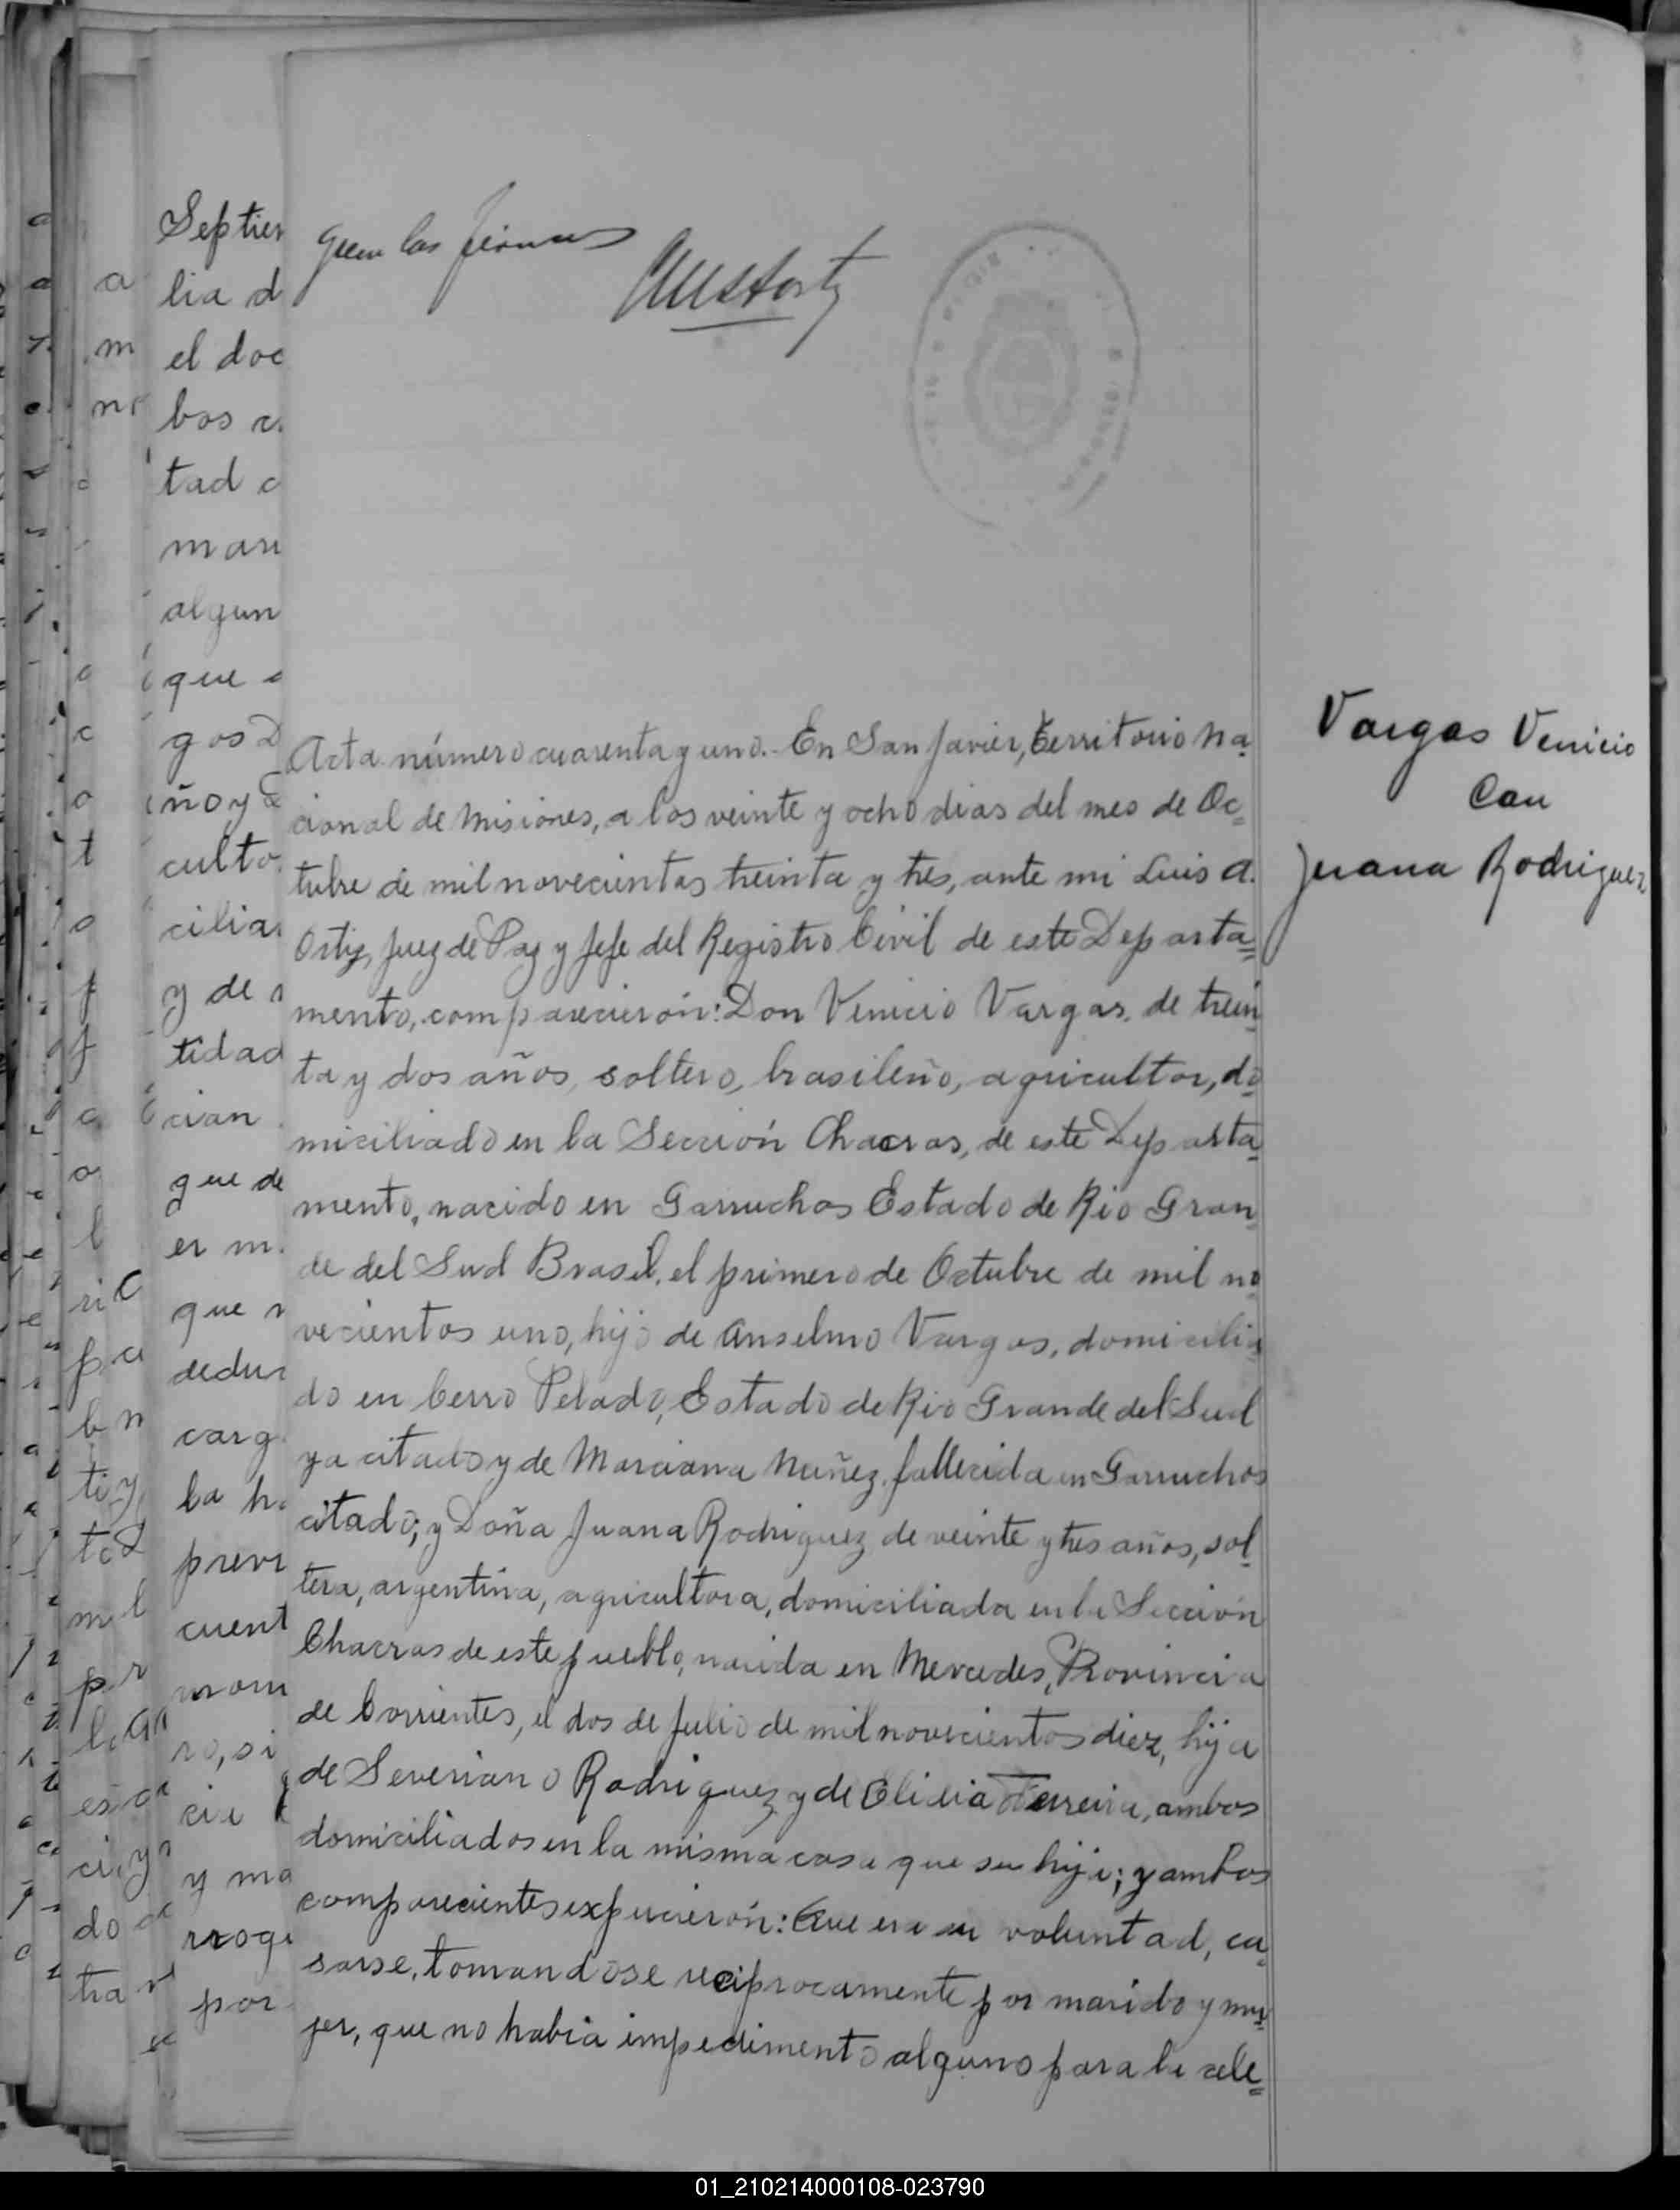 Septiem
lia d
el doc
bos c
tad c
mari
algun
que
gos D
ño y
culto
cilia
y de
tidad
cian
que de
er m
que
dedu
carg
la h
previ
cuent
mom
ro, si
cie
y ma
rrog
por
las firmas
Acta número cuarenta y uno.- En San Javier, Territorio Na-
cional de Misiones, a los veinte y ocho dias del mes de Oc-
tubre de mil novecientos treinta y tres, ante mi Luis A.
Ortiz, Juez de Paz y Jefe del Registro Civil de este Departa-
mento, comparecierón: Don Venicio Vargas, de trein-
ta y dos años, soltero, brasileño, agricultor, do-
miciliado en la Sección Chacras, de este Departa-
mento, nacido en Garruchos Estado de Rio Gran-
de del Sud Brasil, el primero de Octubre de mil no-
vecientos uno, hijo de Anselmo Vargas, domicilia-
do en Cerro Pelado, Estado de Rio Grande del Sud
ya citado y de Marciana Nuñez, fallecida en Garruchos
citado; y Doña Juana Rodriguez de veinte y tres años, sol-
tera, argentina, agricultora, domiciliada en la Sección
Chacras de este pueblo, nacida en Mercedes, Provincia
de Corrientes, el dos de Julio de mil novecientos diez, hija
de Severiano Rodriguez y de Elidia Ferreira, ambos
domiciliados en la misma casa que su hija; y ambos
comparecientes expucierón: Que era su voluntad, ca-
sarse, tomandose reciprocamente por marido y mu-
jer, que no habia impedimento alguno para la cele-
Vargas Venicio
Con
Juana Rodriguez
01_210214000108-023790